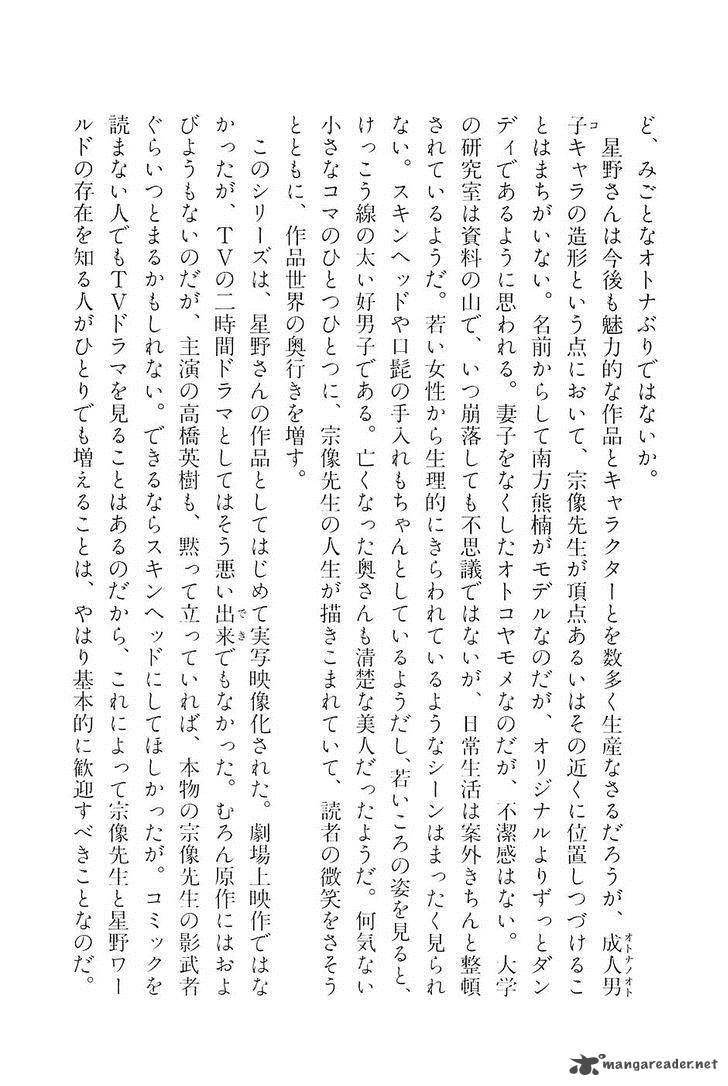 ど、みごとなオトナぶりではないか。
　星野さんは今後も魅力的な作品とキャラクターとを数多く生産なさるだろうが、成人男
子キャラの造形という点において、宗像先生が頂点あるいはその近くに位置しつづけるこ
とはまちがいない。名前からして南方熊楠がモデルなのだが、オリジナルよりずっとダン
ディであるように思われる。妻子をなくしたオトコヤモメなのだが、不潔感はない。大学
の研究室は資料の山で、いつ崩落しても不思議ではないが、日常生活は案外きちんと整頓
されているようだ。若い女性から生理的にきらわれているようなシーンはまったく見られ
ない。スキンヘッドや口髭の手入れもちゃんとしているようだし、若いころの姿を見ると、
けっこう線の太い好男子である。亡くなった奥さんも清楚な美人だったようだ。何気ない
小さなコマのひとつひとつに、宗像先生の人生が描きこまれていて、読者の微笑をさそう
とともに、作品世界の奥行きを増す。
　このシリーズは、星野さんの作品としてはじめて実写映像化された。劇場上映作ではな
かったが、ＴＶの二時間ドラマとしてはそう悪い出来でもなかった。むろん原作にはおよ
びようもないのだが、主演の高橋英樹も、黙って立っていれば、本物の宗像先生の影武者
ぐらいつとまるかもしれない。できるならスキンヘッドにしてほしかったが。コミックを
読まない人でもＴＶドラマを見ることはあるのだから、これによって宗像先生と星野ワー
ルドの存在を知る人がひとりでも増えることは、やはり基本的に歓迎すべきことなのだ。
オトナノオト
コ
でき
mangareader.net